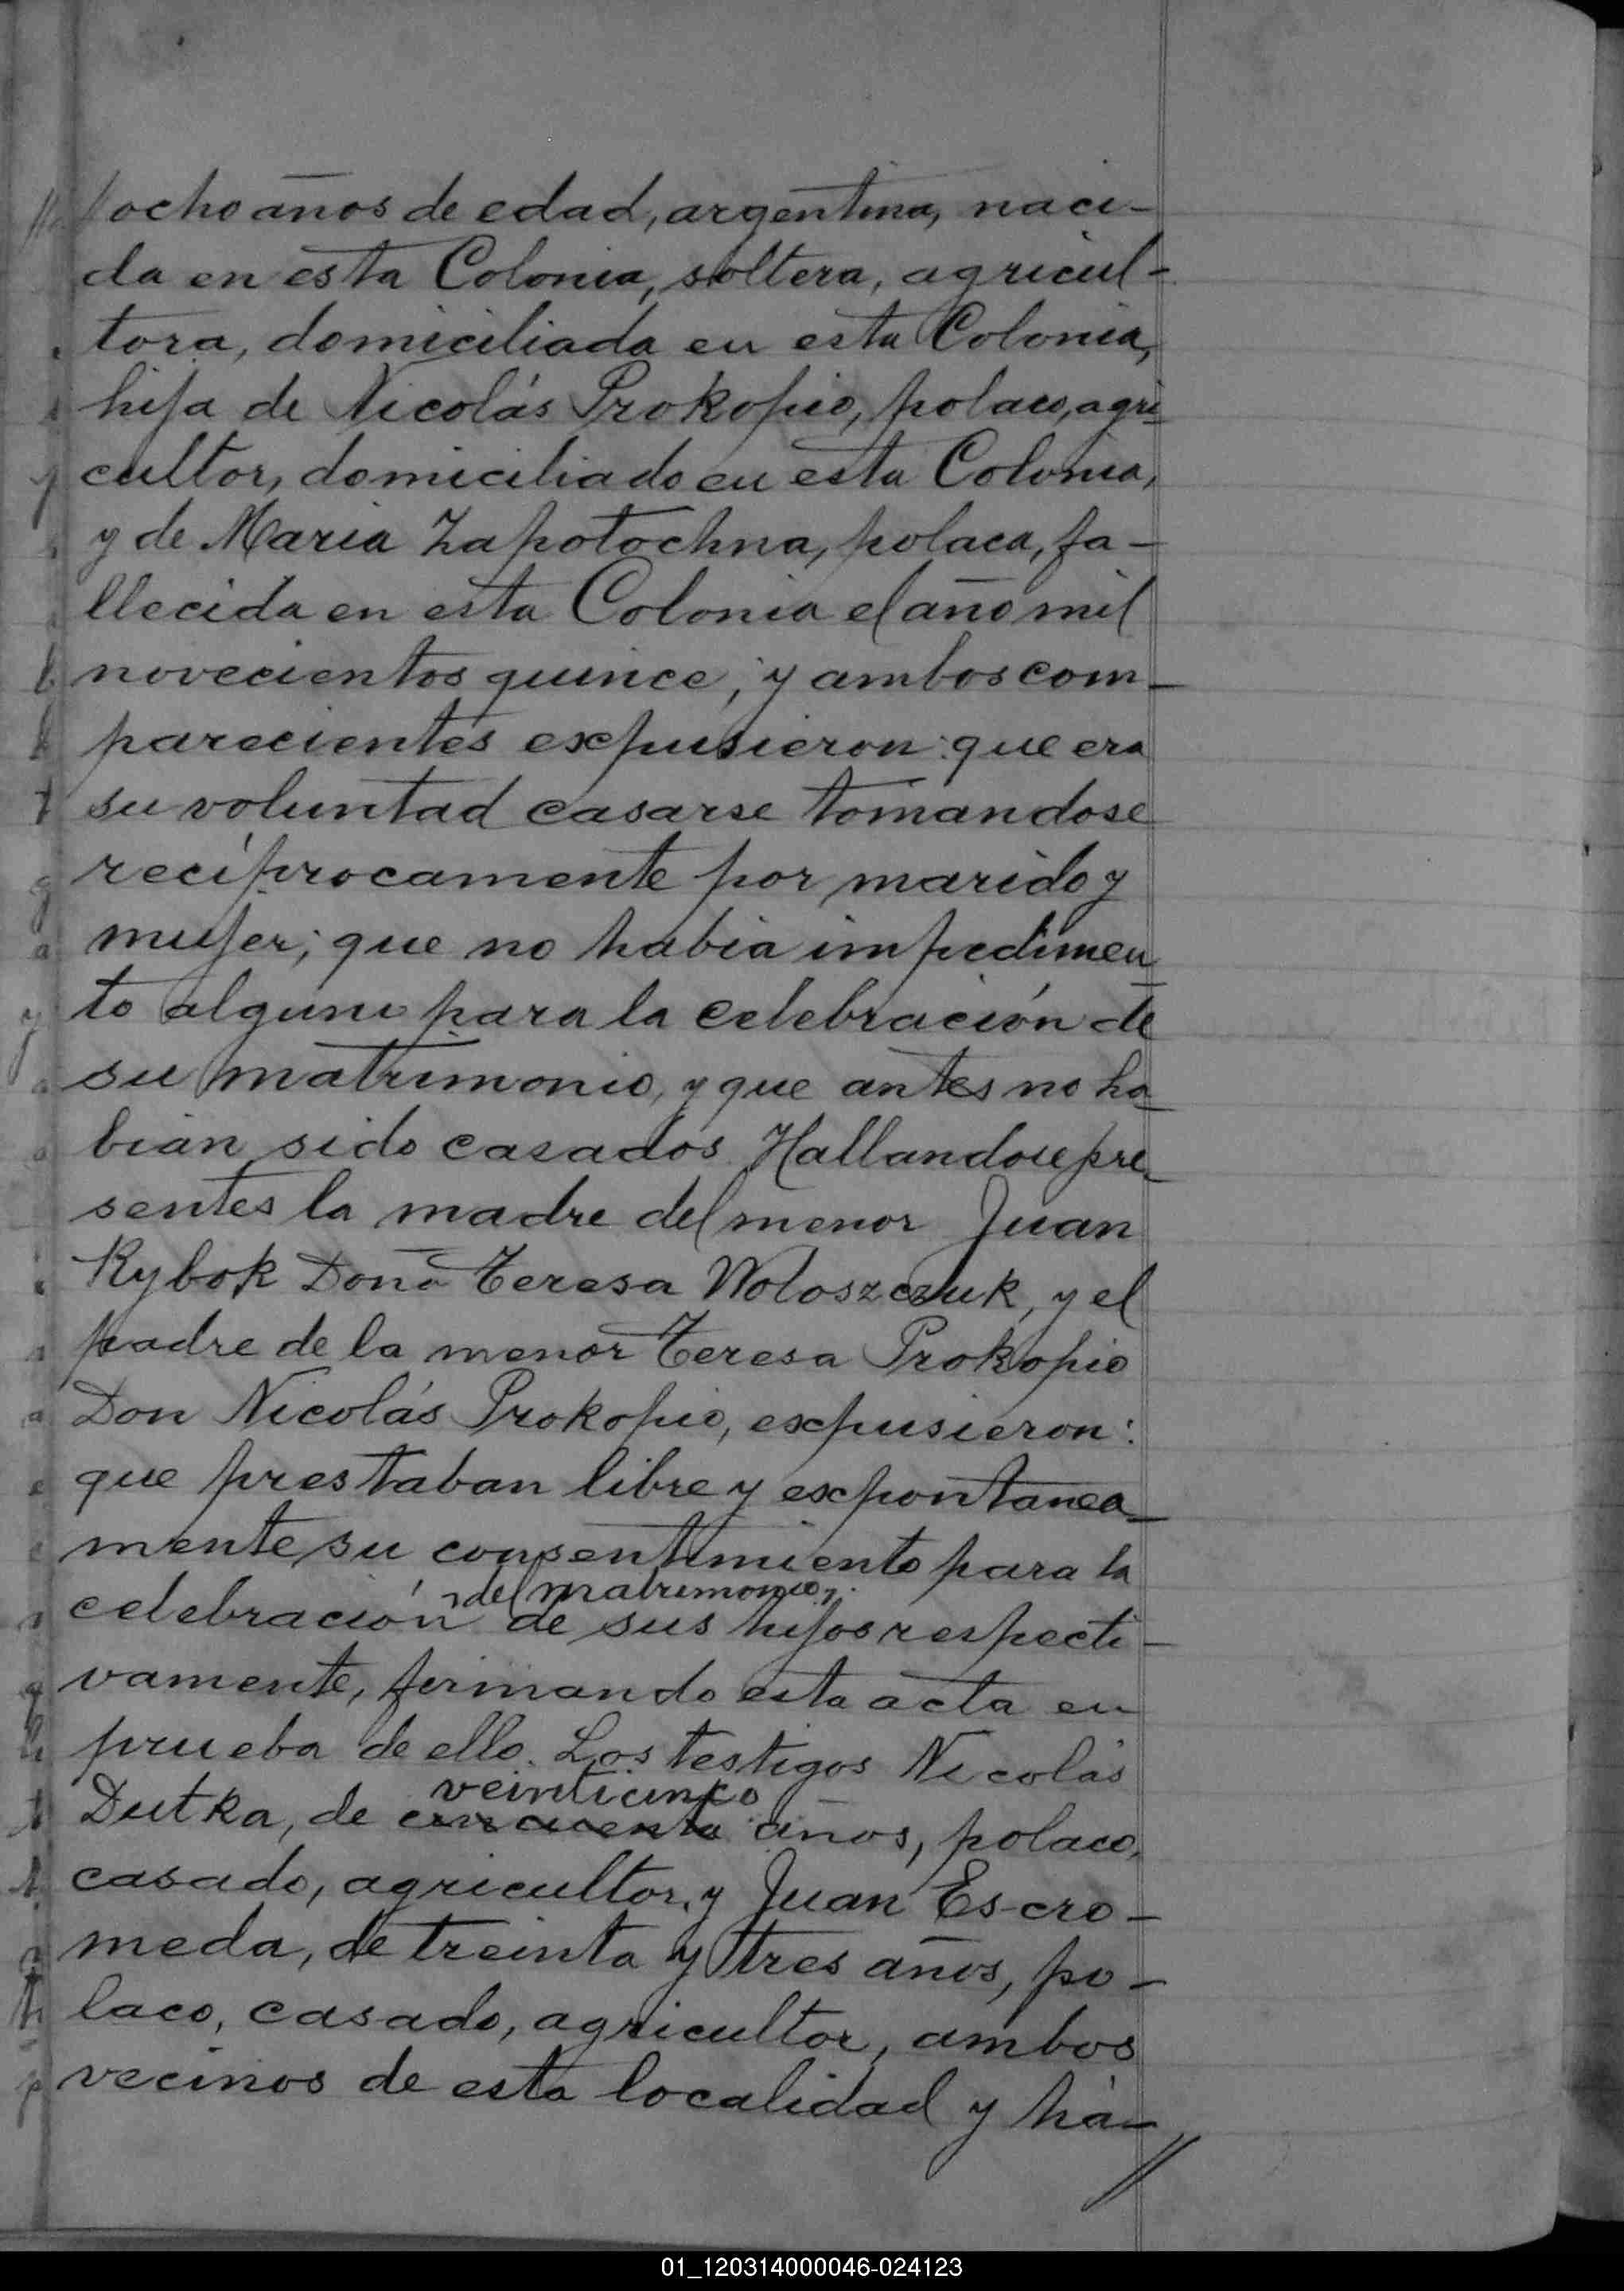 //ocho años de edad, argentina, naci-
da en esta Colonia, soltera, agricul-
tora, domiciliada en esta Colonia,
hija de Nicolás Prokopio, polaco, agri-
cultor, domiciliado en esta Colonia,
y de Maria Zapotochna, polaca, fa-
llecida en esta Colonia el año mil
novecientos quince; y ambos com-
parecientes expusieron: que era
su voluntad casarse tomandose
recíprocamente por marido y
mujer; que no habia impedimen-
to alguno para la celebración de
su matrimonio, y que antes no ha-
bian sido casados. Hallandose pre-
sentes la madre del menor Juan
Rybok Doña Teresa Woloszczuk, y el
padre de la menor Teresa Prokopio
Don Nicolás Prokopio, expusieron:
que prestaban libre y expontanea-
mente su consentimiento para la
del matrimonio
celebración de sus hijos respecti-
vamente, firmando esta acta en
prueba de ello. Los testigos Nicolás
veinticinco
Dutka, de cincuenta años, polaco,
casado, agricultor, y Juan Es-cro-
meda, de treinta y tres años, po-
laco, casado, agricultor, ambos
vecinos de esta localidad y há-
//
01_120314000046-024123